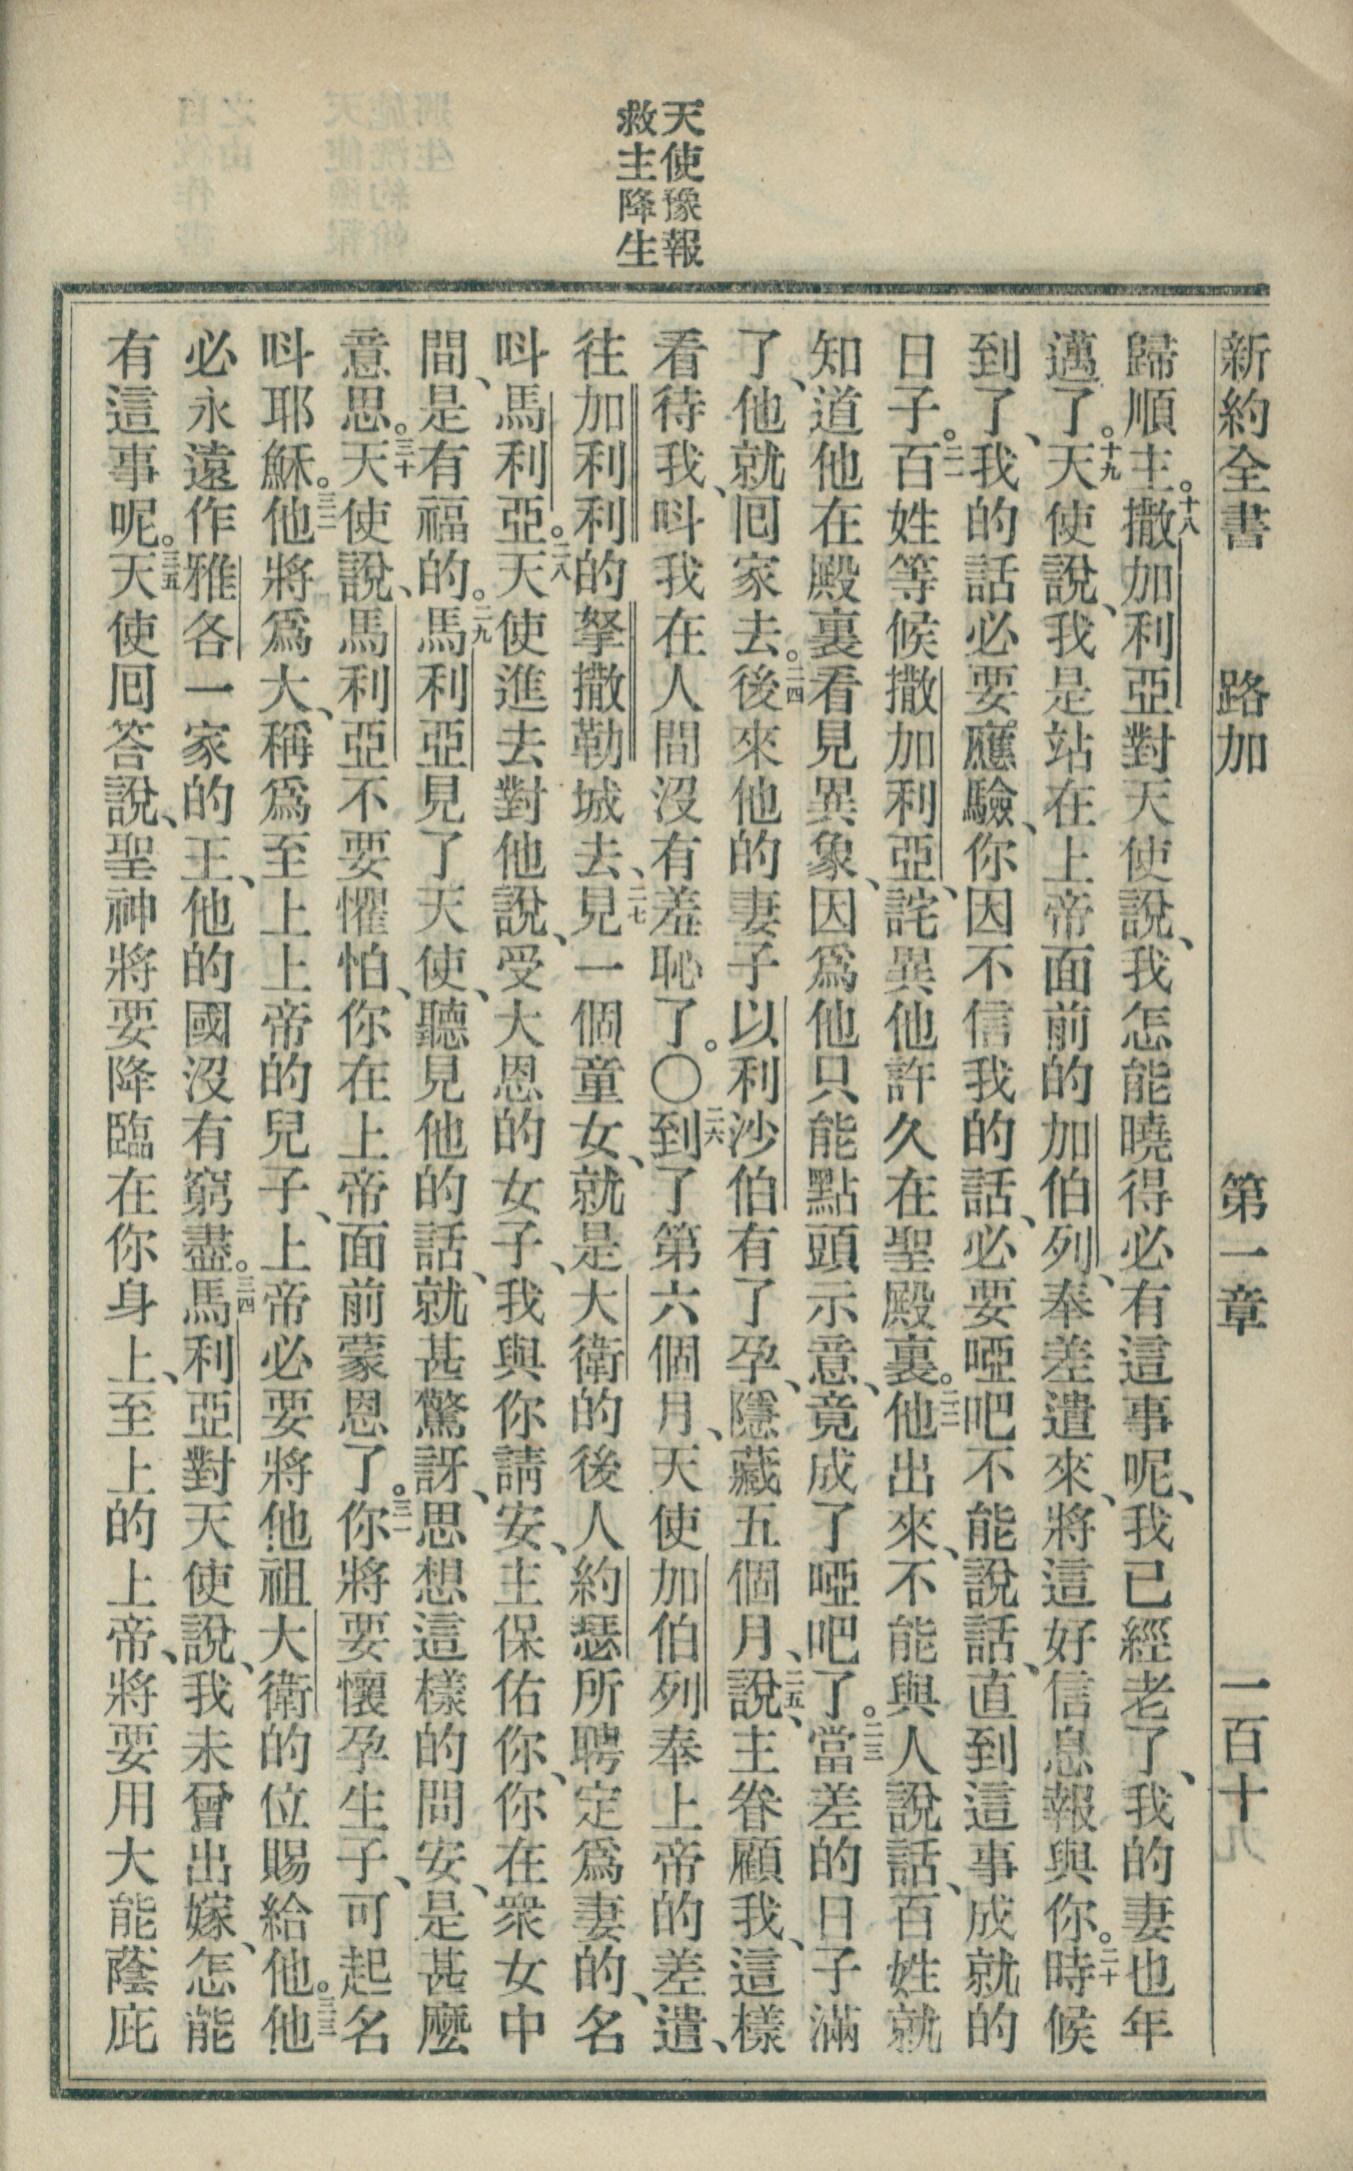 天使豫報
救主降生
新約全書 路加 第一章 一百十九
歸順主。十八撒加利亞對天使說、我怎能曉得必有這事呢、我已經老了、我的妻也年
邁了。十九天使說、我是站在上帝面前的加伯列、奉差遣來、將這好信息報與你。二十時候
到了、我的話必要應驗、你因不信我的話、必要啞吧不能說話、直到這事成就的
日子。二一百姓等候撒加利亞、詫異他許久在聖殿裏。二二他出來、不能與人說話、百姓就
知道他在殿裏看見異象、因爲他只能點頭示意、竟成了啞吧了。二三當差的日子滿
了、他就囘家去。二四後來他的妻子以利沙伯有了孕、隱藏五個月、二五說、主眷顧我、這樣
看待我、呌我在人間沒有羞恥了。〇二六到了第六個月、天使加伯列奉上帝的差遣、
往加利利的拏撒勒城去、二七見一個童女、就是大衛的後人約瑟所聘定爲妻的、名
呌馬利亞。二八天使進去對他說、受大恩的女子、我與你請安、主保佑你、你在衆女中
間、是有福的。二九馬利亞見了天使、聽見他的話、就甚驚訝、思想這樣的問安、是甚麼
意思。三十天使說、馬利亞不要懼怕、你在上帝面前蒙恩了。三一你將要懷孕生子、可起名
呌耶穌。三二他將爲大、稱爲至上上帝的兒子、上帝必要將他祖大衛的位賜給他。三三他
必永遠作雅各一家的王、他的國沒有窮盡。三四馬利亞對天使說、我未曾出嫁、怎能
有這事呢。三五天使囘答說、聖神將要降臨在你身上、至上的上帝、將要用大能蔭庇